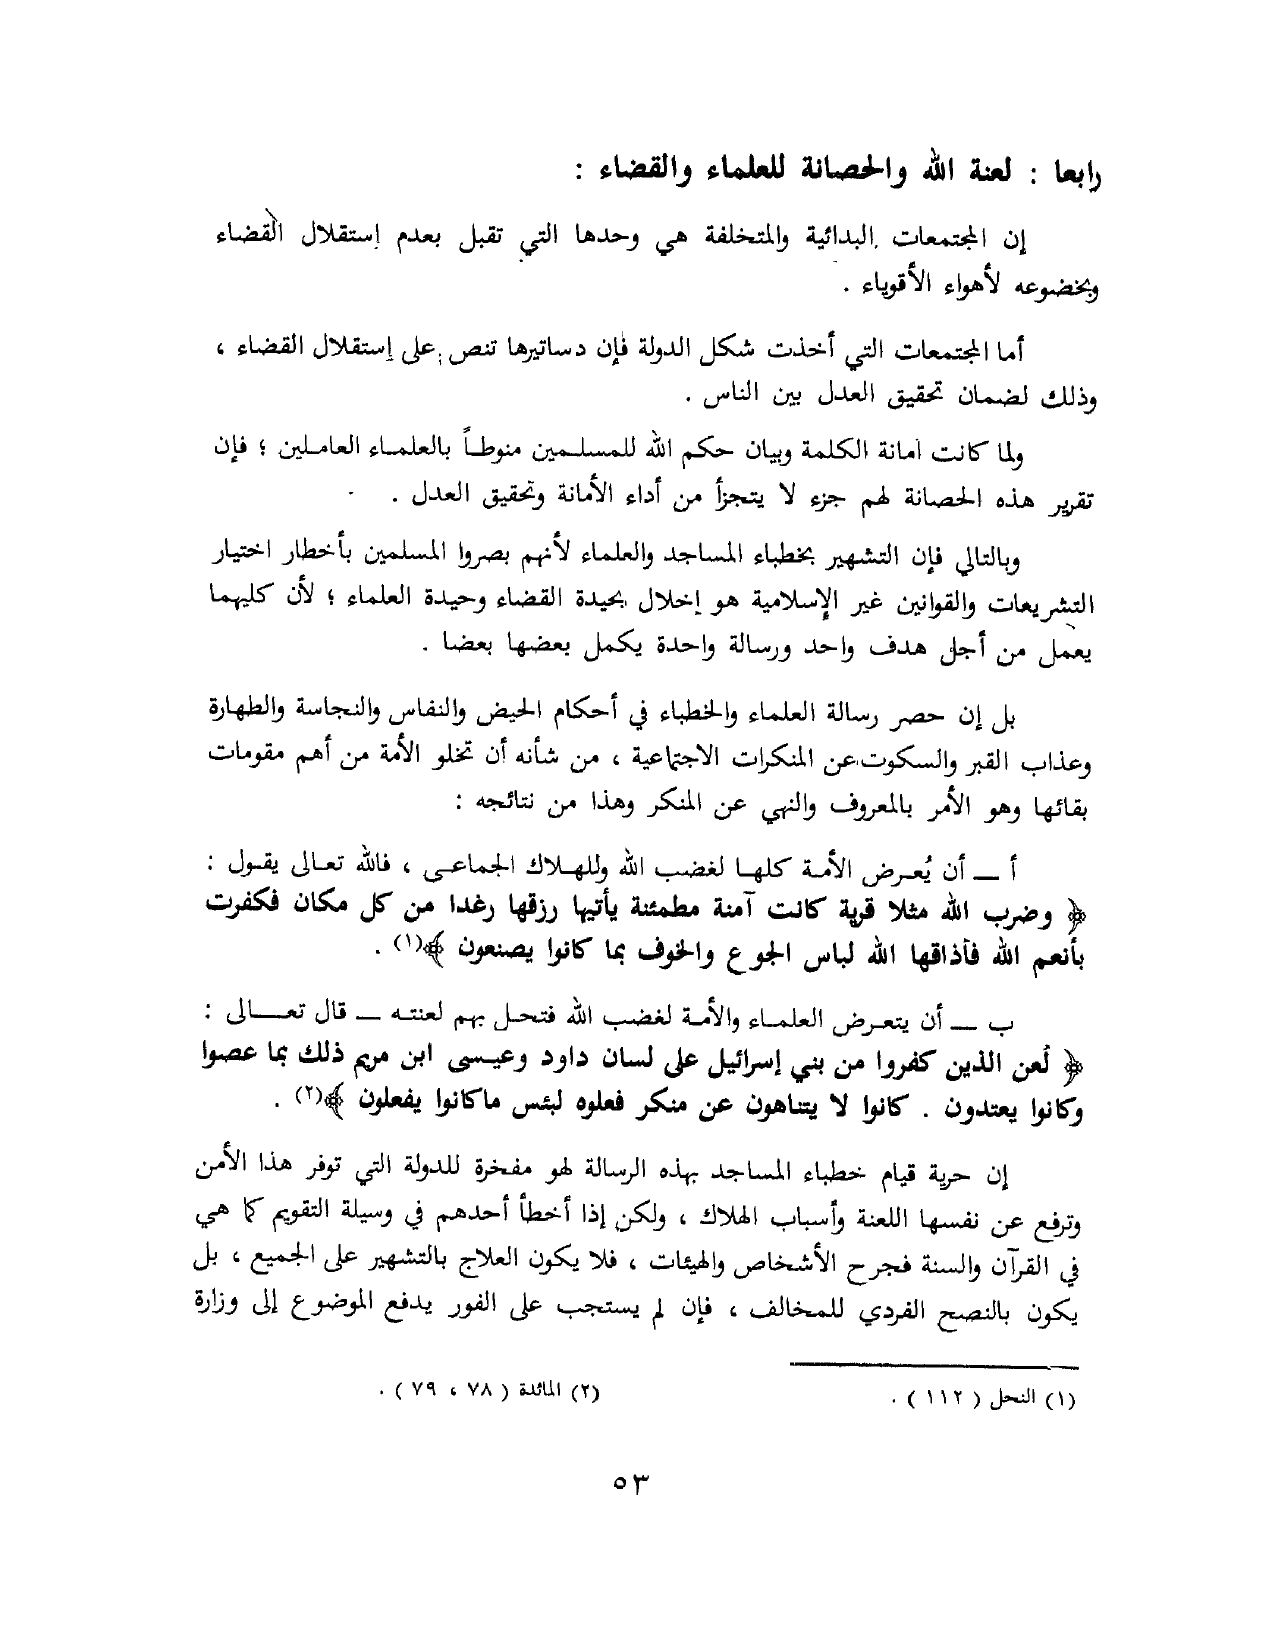 رابعا : لعنة الله والحصانة للعلماء والقضاء :
إن المجتمعات البدائية والمتخلفة هي وحدها التي تقبل بعدم إستقلال القضاء
وبخضوعه لأهواء الأقوياء .
أما المجتمعات التي أخذت شكل الدولة فإن دساتيرها تنص على إستقلال القضاء ،
وذلك لضمان تحقيق العدل بين الناس .
ولما كانت أمانة الكلمة وبيان حكم الله للمسلمين منوطاً بالعلماء العاملين ؛ فإن
تقرير هذه الحصانة لهم جزء لا يتجزأ من أداء الأمانة وتحقيق العدل .
وبالتالي فإن التشهير بخطباء المساجد والعلماء لأنهم بصروا المسلمين بأخطار اختيار
التشريعات والقوانين غير الإسلامية هو إخلال بحيدة القضاء وحيدة العلماء ؛ لأن كليهما
يعمل من أجل هدف واحد ورسالة واحدة يكمل بعضها بعضا .
بل إن حصر رسالة العلماء والخطباء في أحكام الحيض والنفاس والنجاسة والطهارة
وعذاب القبر والسكوت عن المنكرات الاجتماعية ، من شأنه أن تخلو الأمة من أهم مقومات
بقائها وهو الأمر بالمعروف والنهي عن المنكر وهذا من نتائجه :
أ ــ أن يُعرض الأمة كلها لغضب الله وللهلاك الجماعى ، فالله تعالى يقول :
﴿ وضرب الله مثلا قرية كانت آمنة مطمئنة يأتيها رزقها رغدا من كل مكان فكفرت
بأنعم الله فأذاقها الله لباس الجوع والخوف بما كانوا يصنعون ﴾(١) .
ب ــ أن يتعرض العلماء والأمة لغضب الله فتحل بهم لعنته ــ قال تعالى :
﴿ لُعن الذين كفروا من بني إسرائيل على لسان داود وعيسى ابن مريم ذلك بما عصوا
وكانوا يعتدون . كانوا لا يتناهون عن منكر فعلوه لبئس ماكانوا يفعلون ﴾(٢) .
إن حرية قيام خطباء المساجد بهذه الرسالة لهو مفخرة للدولة التي توفر هذا الأمن
وترفع عن نفسها اللعنة وأسباب الهلاك ، ولكن إذا أخطأ أحدهم في وسيلة التقويم كما هي
في القرآن والسنة فجرح الأشخاص والهيئات ، فلا يكون العلاج بالتشهير على الجميع ، بل
يكون بالنصح الفردي للمخالف ، فإن لم يستجب على الفور يدفع الموضوع إلى وزارة
(١) النحل ( ١١٢ ) .
(٢) المائدة ( ٧٨ ، ٧٩ ) .
٥٣